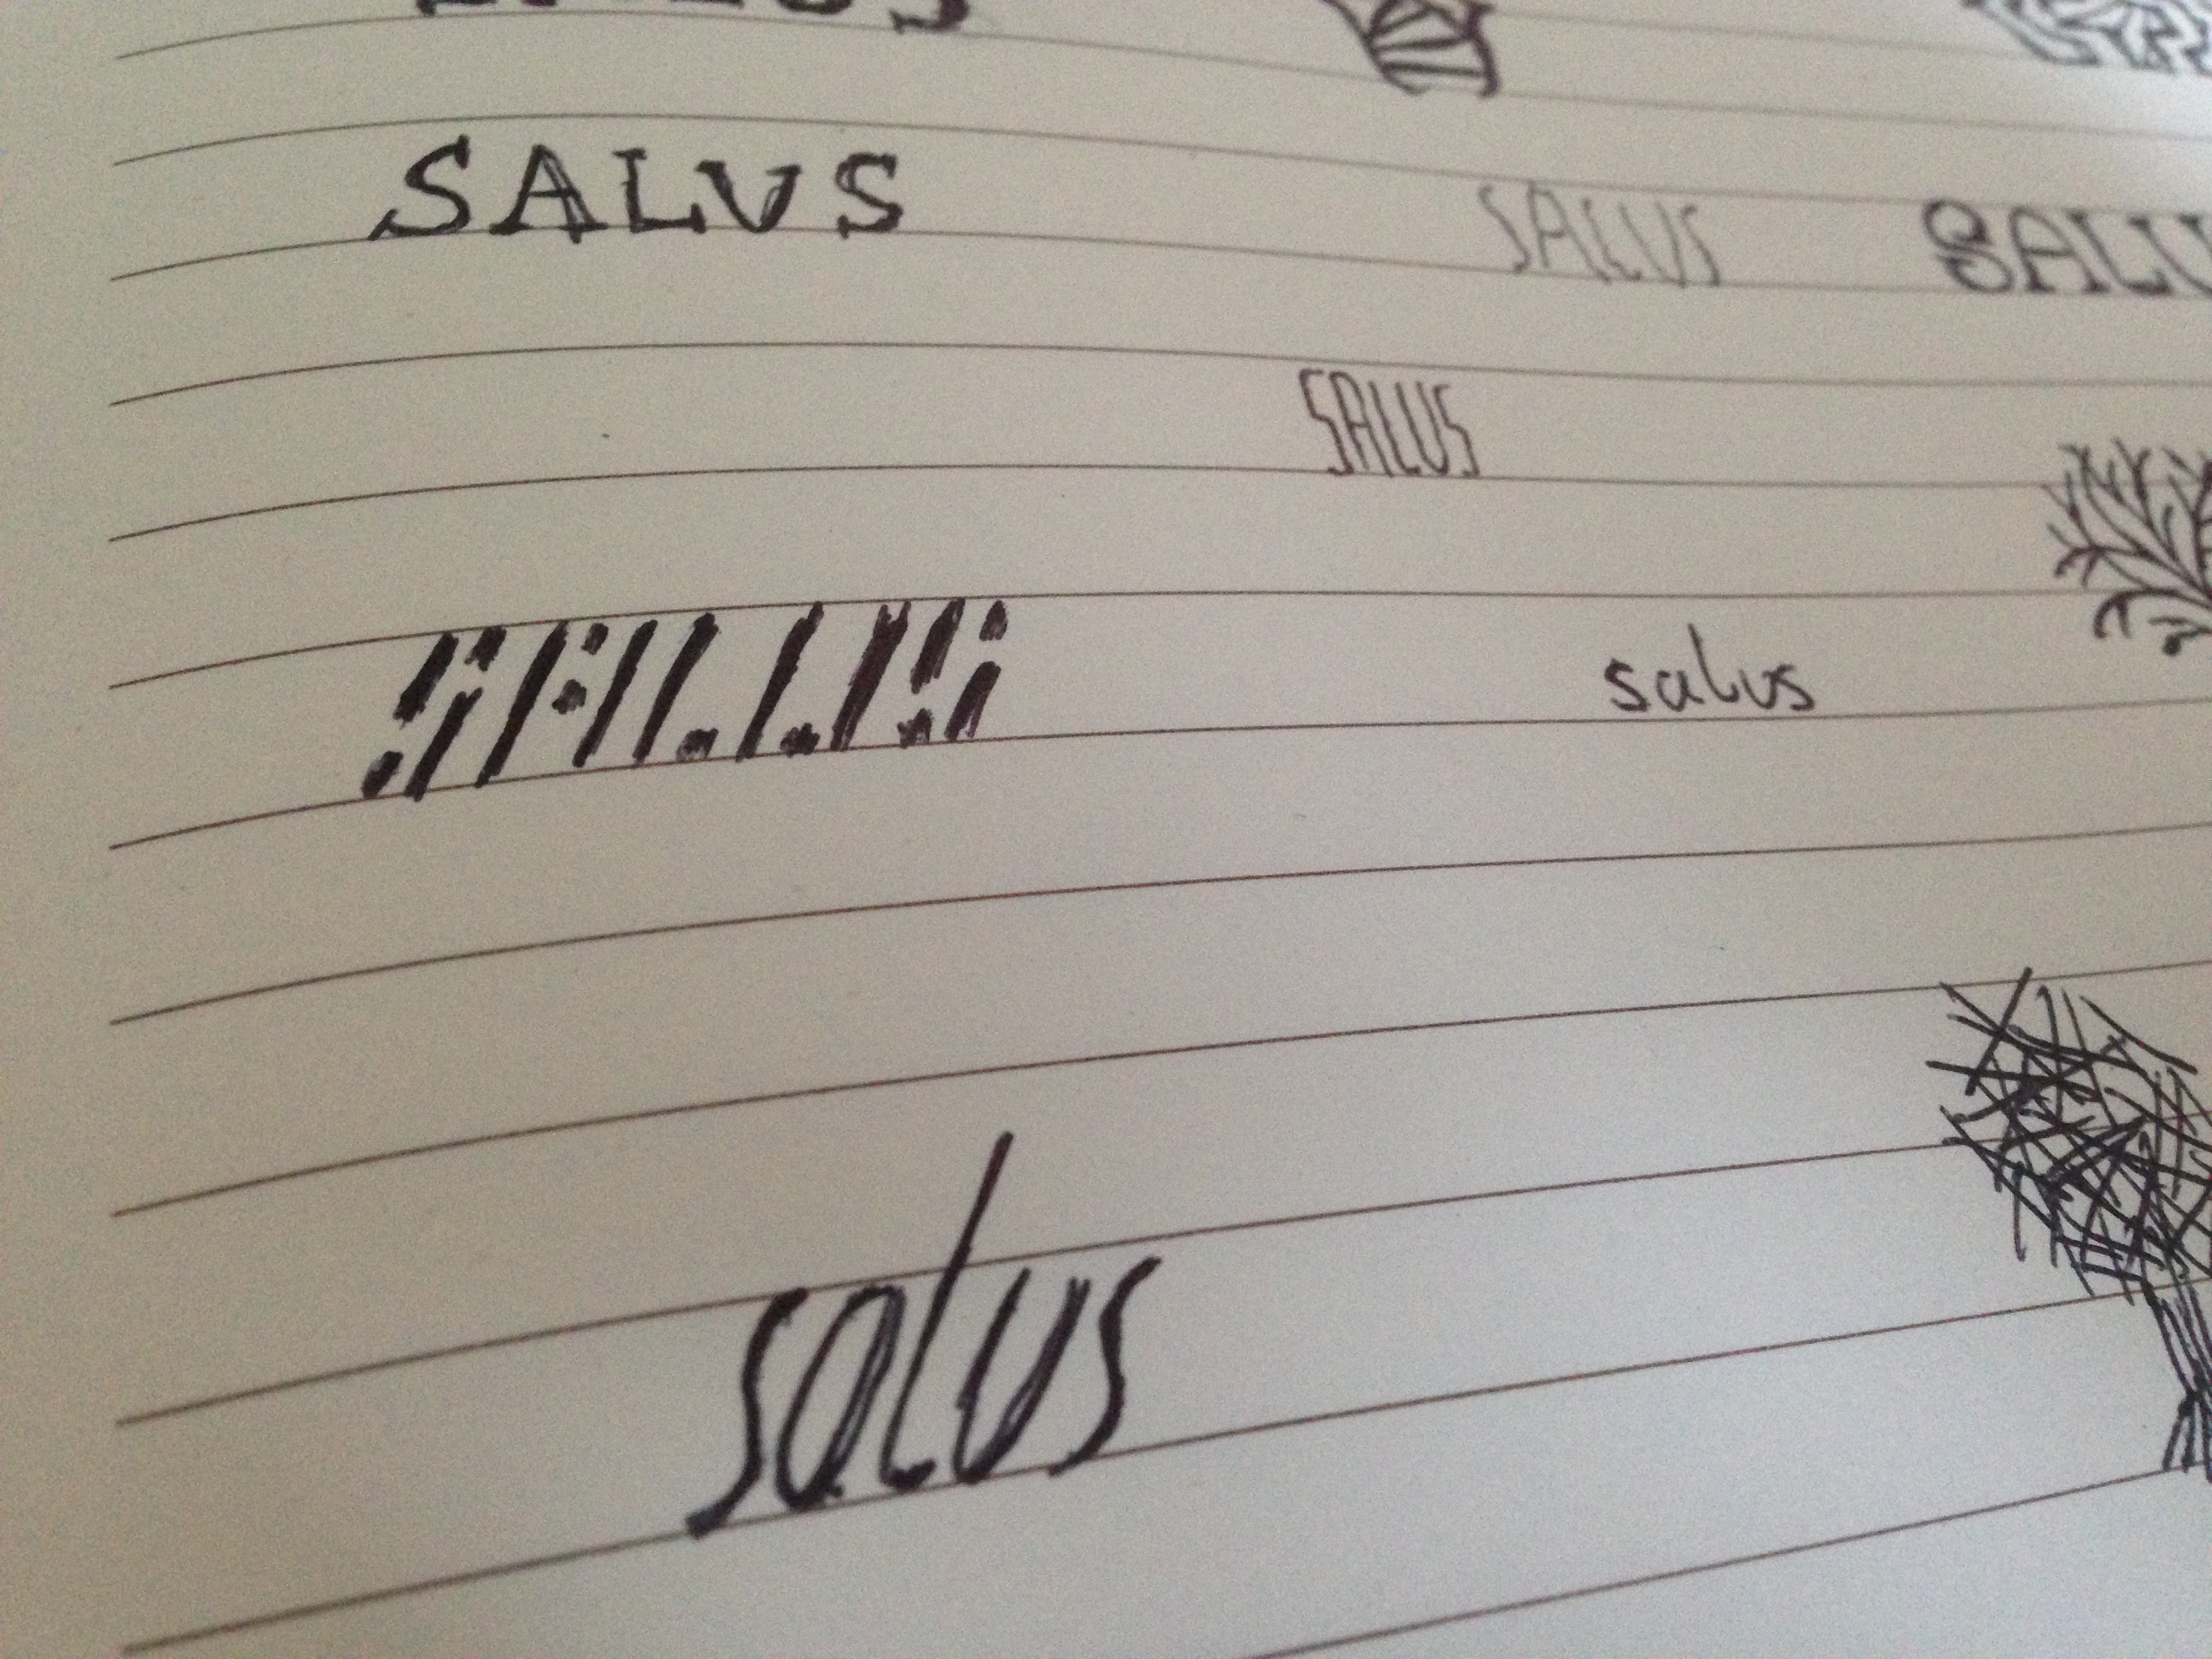 SALUS
SALUS
SALU
SALUS
SALUS
salus
salus